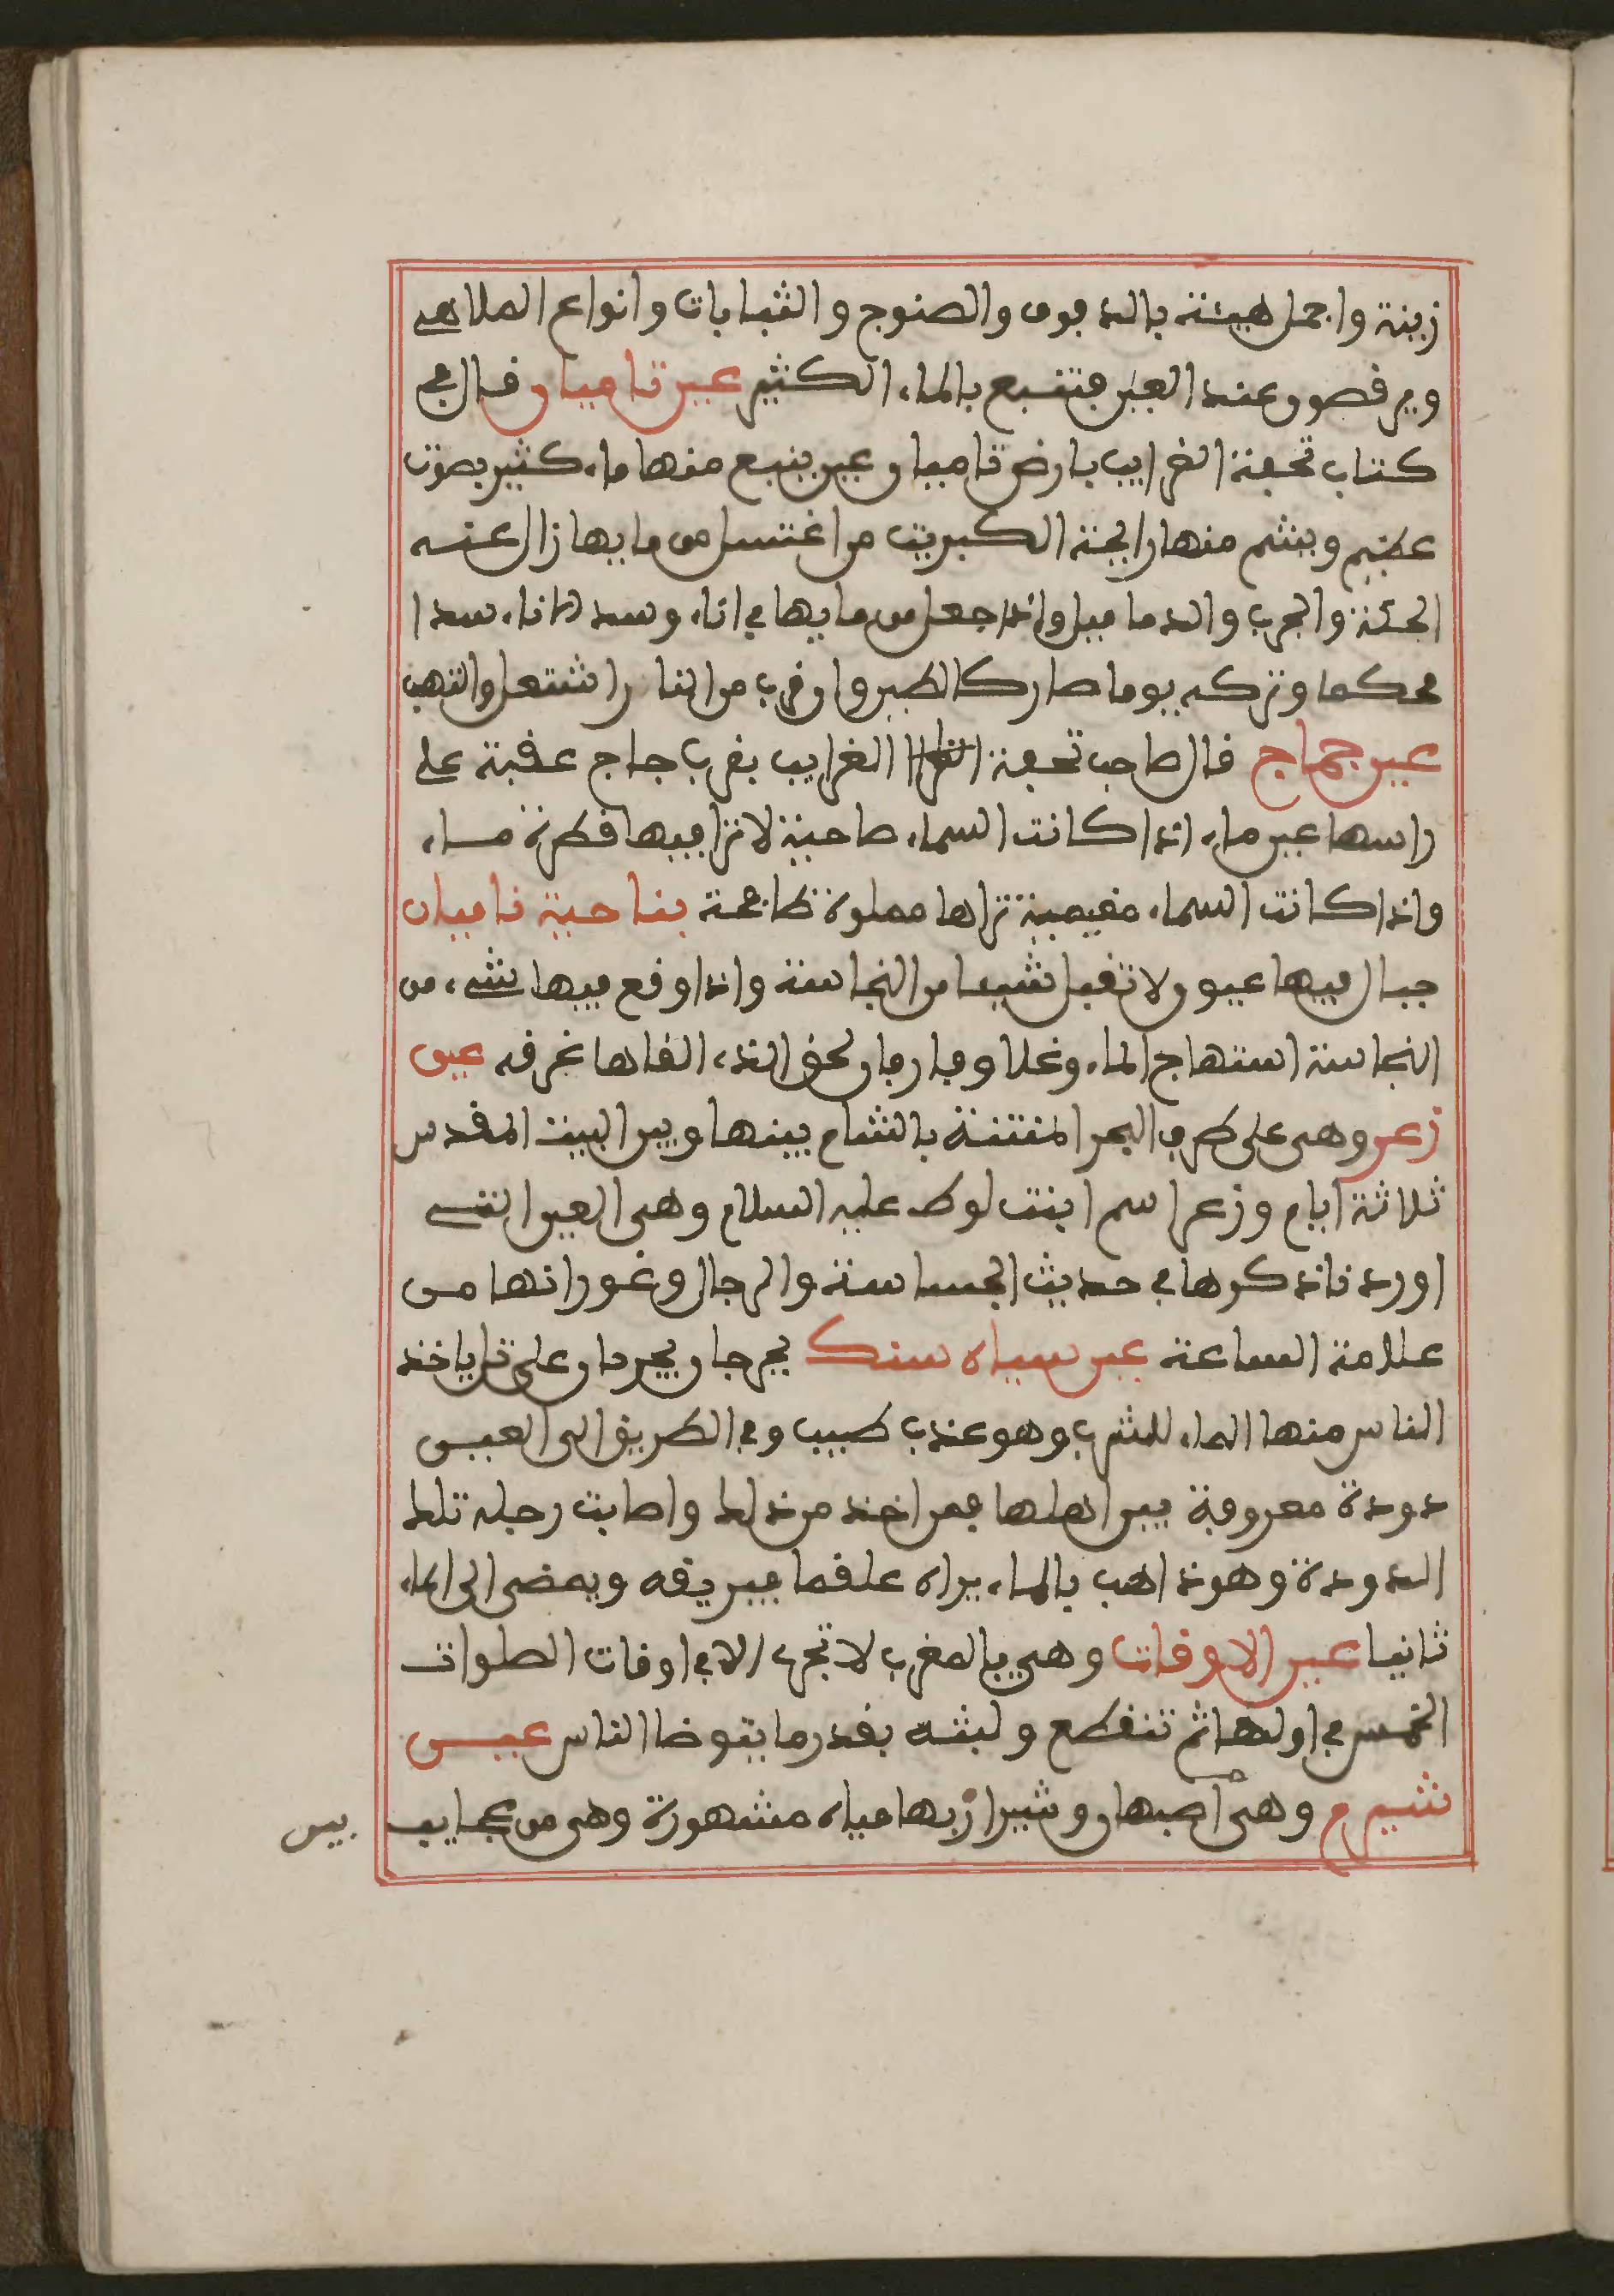 زينة واجمل هيئة بالدفوف والصنوج والشبابات وانواع الملاهي
ويرقصون عند العين فتنبع بالماء الكثير عين ناميان قال في
كتاب تحفة الغرايب بارض ناميان عين ينبع منها ماء كثير بصوت
عظيم ويشم منها رايحة الكبريت من اغتسل من مايها زال عنه
الحكة والجرب والدماميل واذا جعل من مايها في اناء وسد الاناء سدا
محكما وتركه يوما صار كالطين وان قرب من النار اشتعل والتهب
عين جماج قال صاحب تحفة الغرايب بقرب جاج عقبة على
راسها عين ماء اذا كانت السماء صاحية لا ترا فيها قطرة ماء
واذا كانت السماء مغيمية تراها مملوة طافحة بناحية ناميان
جبال فيها عيون لا تقبل شيا من النجاسة واذا وقع فيها شيء من
النجاسة استهاج الماء وغلا وفار فان لحق الذي القاها غرقه عين
زعر وهي على طرف البحر المنتنة بالشام بينها وبين البيت المقدس
ثلاثة ايام وزعر اسم ابنت لوط عليه السلام وهي العين التي
اوردنا ذكرها في حديث الجساسة والرجال وغورانها من
علامة الساعة عين سياه سنك بجرجان بجردان على تل ياخذ
الناس منها الماء للشرب وهو عذب طيب وفي الطريق الى العين
دودة معروفة بين اهلها فمن اخذ من ذلك واصابت رجله تلك
الدودة وهو ذاهب بالماء يراه علقما فيريقه ويمضي الى الماء
ثانيا عين الاوقات وهي بالمغرب لا تجري الا في اوقات الصلوات
الخمس في اولها ثم تنقطع ولبثه بقدر ما يتوضا الناس عين
شيرم وهي اصبهان وشيراز بها مياه مشهورة وهي من عجايب
بين